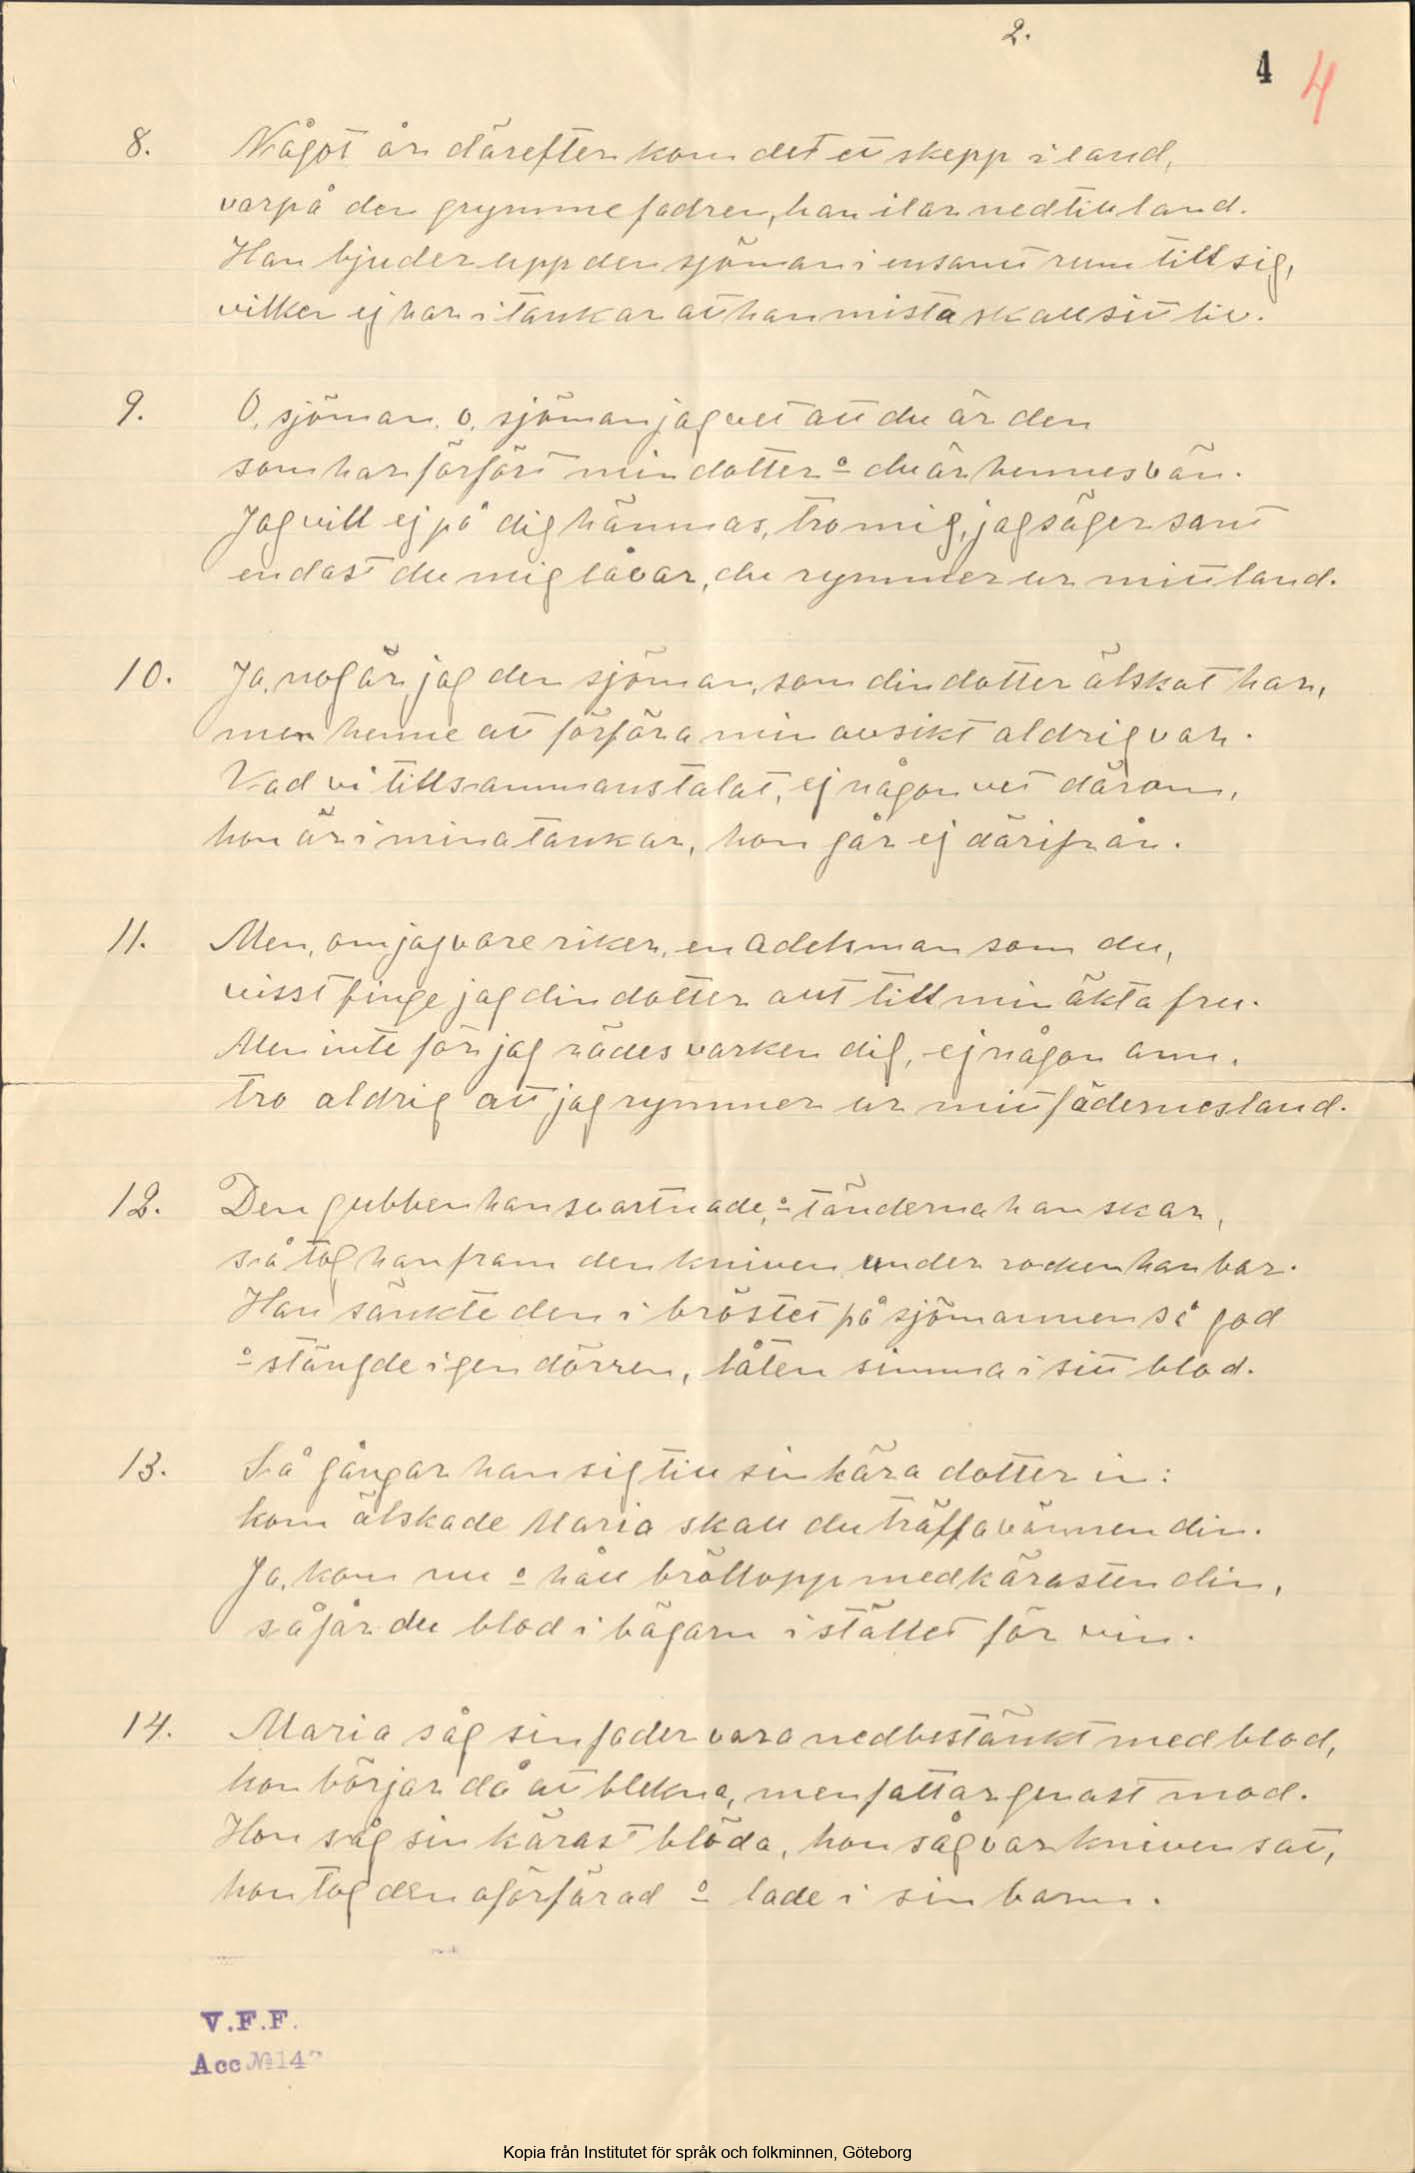 2.
4 4
8. Något år därefter kom det ett skepp i land,
varpå den grymme fadren, han ilar ned till land.
Han bjuder upp den sjöman i ensamt rum till sig,
vilken ej har i tankar att han mista skall sitt liv.
9. O, sjöman, o, sjöman jag vet att du är den
som har förfört min dotter å du är hennes vän.
Jag vill ej på dig hämnas, tro mig, jag säger sant
endast du mig låvar, du rymmer ur mitt land.
10. Ja, nog är jag den sjöman, som din dotter älskat har,
men henne att förföra min avsikt aldrig var.
Vad vi tillsammans talat, ej någon vet därom,
hon är i mina tankar, hon går ej därifrån.
11. Men, om jag vore riker, en adelsman som du,
visst finge jag din dotter allt till min äkta fru.
Men inte för jag rädes varken dig, ej någon ann,
tro aldrig att jag rymmer ur mitt fädernesland.
12. Den gubben han svartnade, å tänderna han skar,
så tog han fram den kniven under rocken han bar.
Han sänkte den i bröstet på sjömannen så god
å stängde igen dörren, låten simma i sitt blod.
13. Så gångar han sig till sin kära dotter in:
kom älskade Maria skall du träffa vännen din.
Ja, kom nu å håll bröllopp med kärasten din,
så får du blod i bägarn i stället för vin.
14. Maria såg sin fader vara nedbestänkt med blod,
hon börjar då att blekna, men fattar genast mod.
Hon såg sin kärast blöda, hon såg var kniven satt,
hon tog den oförfärad å lade i sin barm.
V.F.F.
Acc № 14
Kopia från Institutet för språk och folkminnen, Göteborg